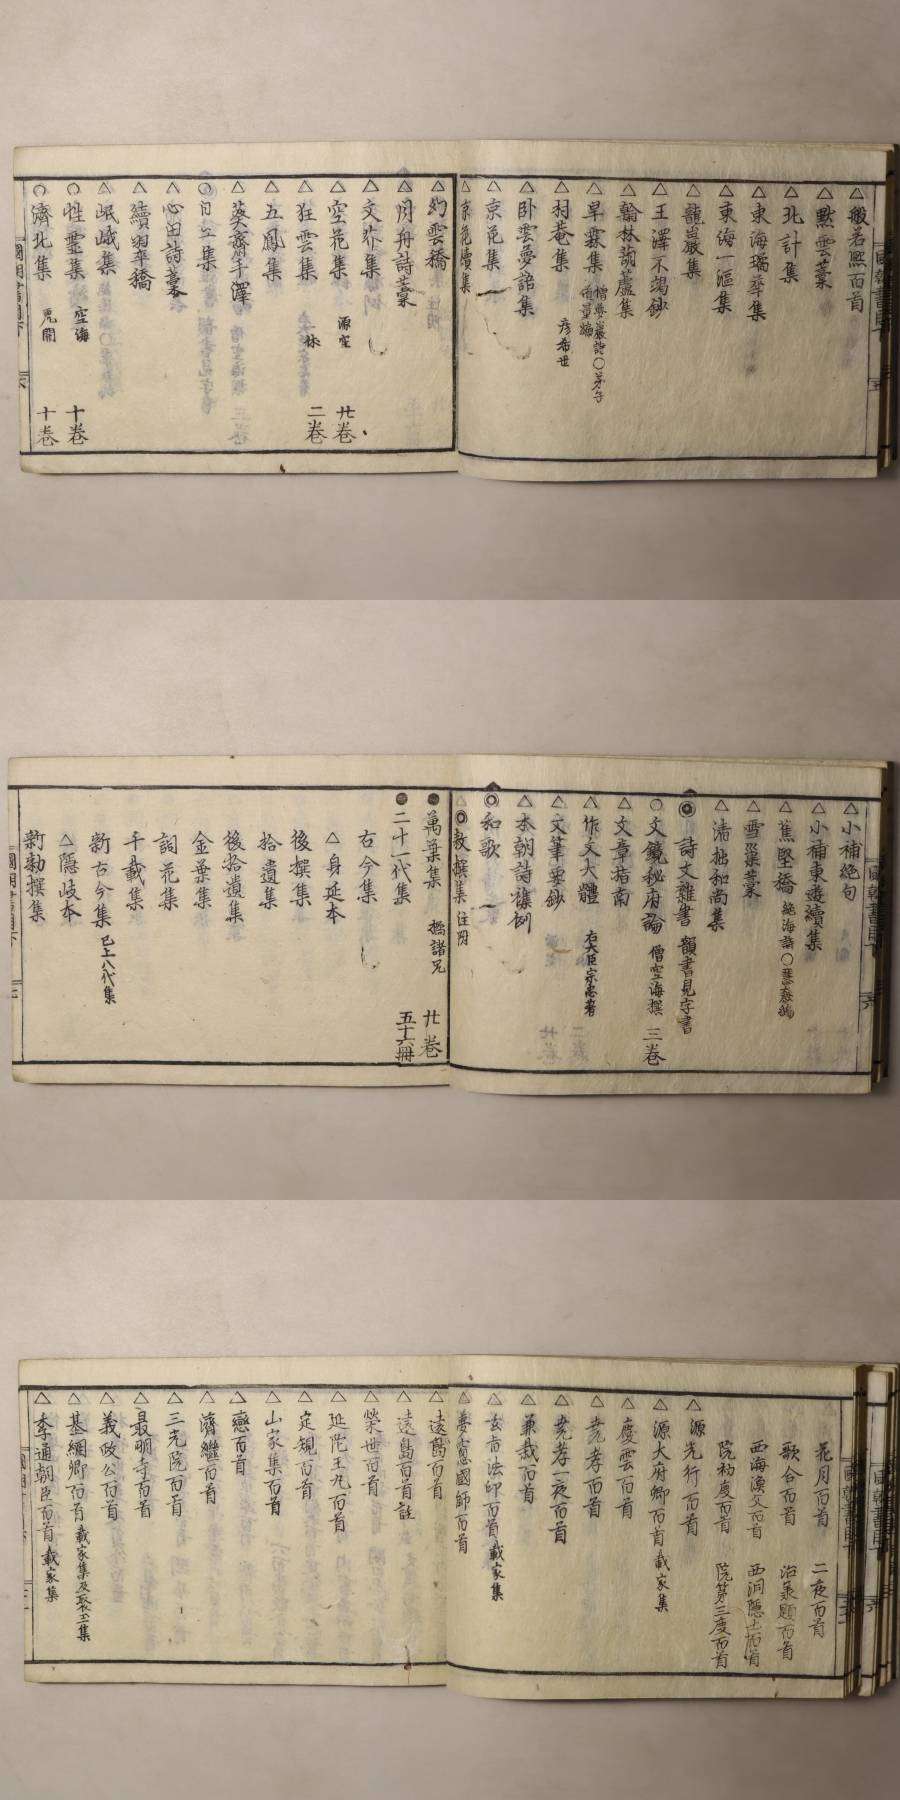 △般若煕百首
△黙雲藁
△北計集
△東海璚華集
△東海一漚集
△龍嵓嚴集
△王澤不渇鈔
△翰林葫蘆集
△旱霖集 僧夢巖詩〇弟子
△村菴集 彦希世
△卧雲夢語集
△京苑集
△京苑續集
△幻雲橋
△閑舟詩藁
△文芥集
△空花集 廿卷
△狂雲集 二卷
△五鳳集
△葵齋手澤
△心田詩藁
△續翠橋
△岷峨集
○性靈集 空海 十卷
○濟北集 十卷
△小補絶句
△小補東遊續集
△蕉堅橋 絶海詩〇
△雪巣藁
△清拙和尚集
◎詩文雜書 韻書見字書
○文鏡秘府論 僧空海撰 三卷
△文章指南
△作文大體 右大臣宗忠著
△文筆要鈔
△本朝詩穐例
◎和歌
◎敕撰集 注附
●萬葉集 橘諸兄 廿卷
●二十一代集 五十六冊
古今集
△身延本
後撰集
拾遺集
後拾遺集
金葉集
詞花集
千載集
新古今集 已上八代集
△隱岐本
新勅撰集
花月百首 二夜百首
歌合百首 治承題百首
西海漁父百首 西洞隱士百首
院初度百首 院第三度百首
△源光行百首
△源大府卿百首 載家集
△慶雲百首
△尭孝百首
△尭孝一夜百首
△兼哉百首
△玄旨法印百首 載家集
△夢窻國師百首
△遠島百首
△遠島百首註
△榮世百首
△延陀王九百首
△定規百首
△山家集百首
△戀百首
△濟繼百首
△三光院百首
△最明寺百首
△義政公百首
△基綱卿百首 載家集及裂玉集
△李通朝臣百首 載家集